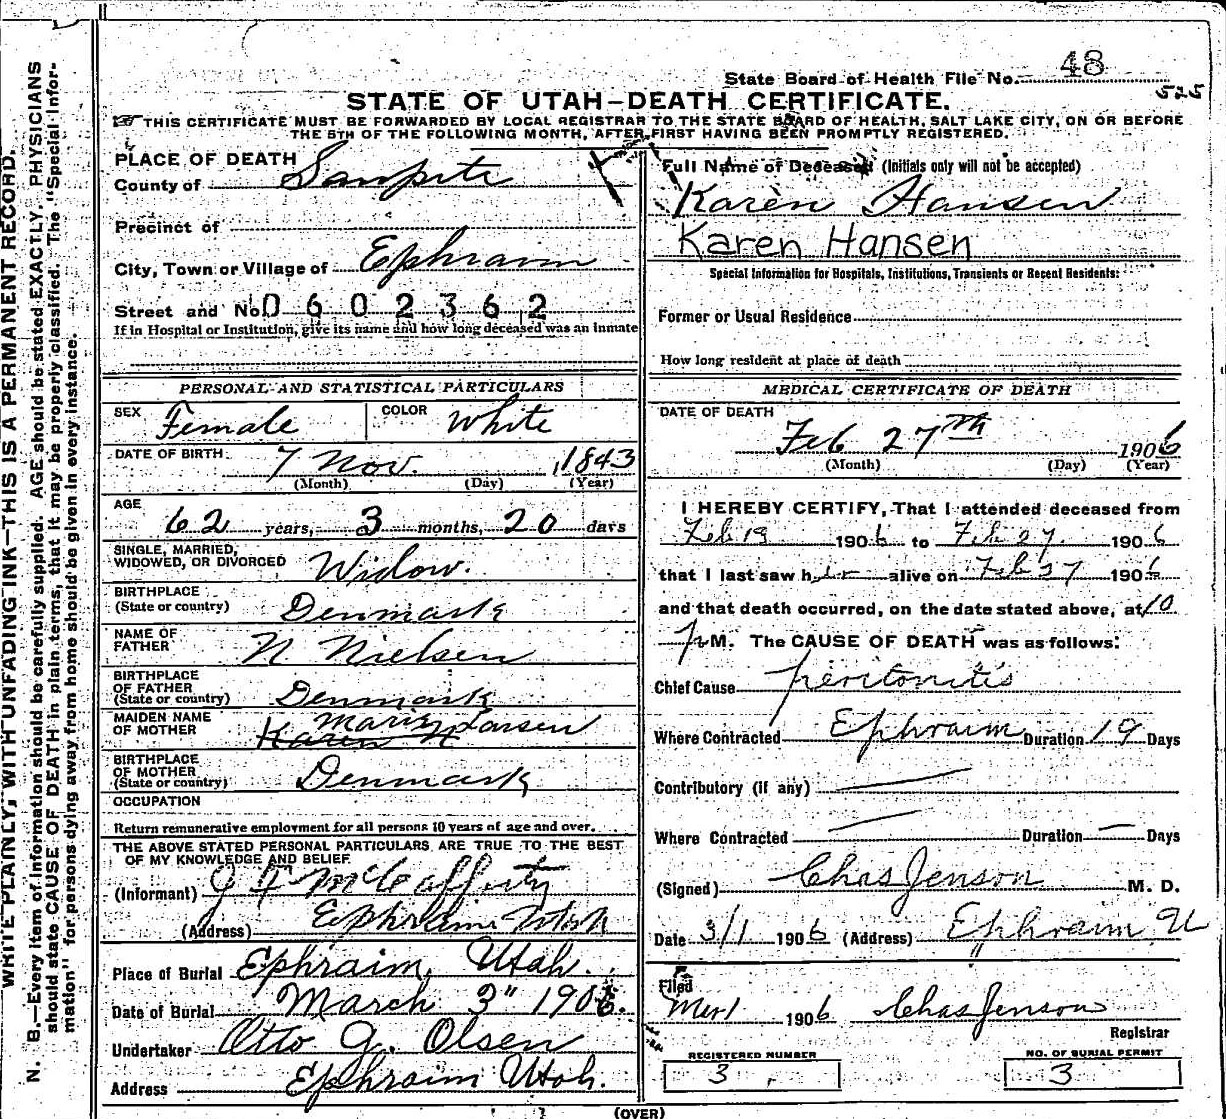 State Board of Health File No. 48
525
STATE OF UTAH—DEATH CERTIFICATE.
THIS CERTIFICATE MUST BE FORWARDED BY LOCAL REGISTRAR TO THE STATE BOARD OF HEALTH, SALT LAKE CITY, ON OR BEFORE
THE 5TH OF THE FOLLOWING MONTH, AFTER FIRST HAVING BEEN PROMPTLY REGISTERED.
WRITE PLAINLY, WITH UNFADING INK—THIS IS A PERMANENT RECORD.
N. B.—Every item of information should be carefully supplied. AGE should be stated EXACTLY. PHYSICIANS
should state CAUSE OF DEATH in plain terms, that it may be properly classified. The "Special Infor-
mation" for persons dying away from home should be given in every instance.
PLACE OF DEATH
County of Sanpete
Precinct of
City, Town or Village of Ephraim
Street and No. 0602362
If in Hospital or Institution, give its name and how long deceased was an inmate
PERSONAL AND STATISTICAL PARTICULARS
SEX Female COLOR White
DATE OF BIRTH 7 Nov. 1843
(Month) (Day) (Year)
AGE 62 years, 3 months, 20 days
SINGLE, MARRIED,
WIDOWED, OR DIVORCED Widow.
BIRTHPLACE
(State or country) Denmark
NAME OF
FATHER N Nielsen
BIRTHPLACE
OF FATHER
(State or country) Denmark
MAIDEN NAME
OF MOTHER Karen N Maria Larsen
BIRTHPLACE
OF MOTHER
(State or country) Denmark
OCCUPATION
Return remunerative employment for all persons 10 years of age and over.
THE ABOVE STATED PERSONAL PARTICULARS ARE TRUE TO THE BEST
OF MY KNOWLEDGE AND BELIEF
(Informant) J F McCafferty
(Address) Ephraim Utah
Place of Burial Ephraim, Utah.
Date of Burial March 3" 1906.
Undertaker Otto G. Olsen
Address Ephraim Utah.
Full Name of Deceased (Initials only will not be accepted)
Karen Hansen
Karen Hansen
Special Information for Hospitals, Institutions, Transients or Recent Residents:
Former or Usual Residence
How long resident at place of death
MEDICAL CERTIFICATE OF DEATH
DATE OF DEATH
Feb 27th 1906
(Month) (Day) (Year)
I HEREBY CERTIFY, That I attended deceased from
Feb 19 1906 to Feb 27 1906
that I last saw her alive on Feb 27 1906
and that death occurred, on the date stated above, at 10
P M. The CAUSE OF DEATH was as follows:
Chief Cause peritonitis
Where Contracted Ephraim Duration 19 Days
Contributory (if any) —
Where Contracted — Duration — Days
(Signed) Chas Jenson M. D.
Date 3/1 1906 (Address) Ephraim U
Filed
Mar 1 1906 Chas Jenson
Registrar
REGISTERED NUMBER
3
NO. OF BURIAL PERMIT
3
(OVER)